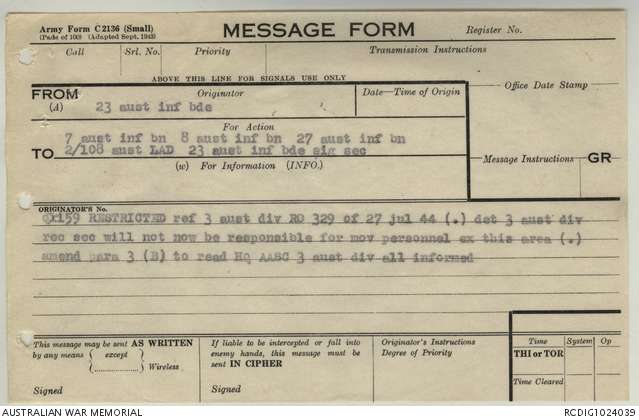 Army Form C2136 (Small)
(Pads of 100) (Adapted Sept. 1943)
MESSAGE FORM
Register No.
Call Srl. No. Priority Transmission Instructions
ABOVE THIS LINE FOR SIGNALS USE ONLY
FROM
(A)
Originator
Date—Time of Origin
Office Date Stamp
23 aust inf bde
For Action
7 aust inf bn 8 aust inf bn 27 aust inf bn
TO
2/108 aust LAD 23 aust inf bde sig sec
(w) For Information (INFO.)
Message Instructions GR
ORIGINATOR'S No.
159 RESTRICTED ref 3 aust div RO 329 of 27 jul 44 (.) det 3 aust div
rec sec will not now be responsible for mov personnel ex this area (.)
amend para 3 (B) to read HQ AASC 3 aust div all informed
This message may be sent AS WRITTEN
by any means { except } Wireless
Signed
If liable to be intercepted or fall into
enemy hands, this message must be
sent IN CIPHER
Signed
Originator's Instructions
Degree of Priority
Time System Op
THI or TOR
Time Cleared
AUSTRALIAN WAR MEMORIAL
RCDIG1024039